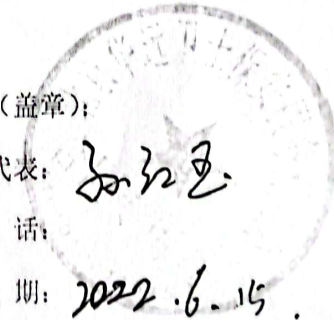 （盖章）：
代表：孙红玉
话：
期：2022.6.15.